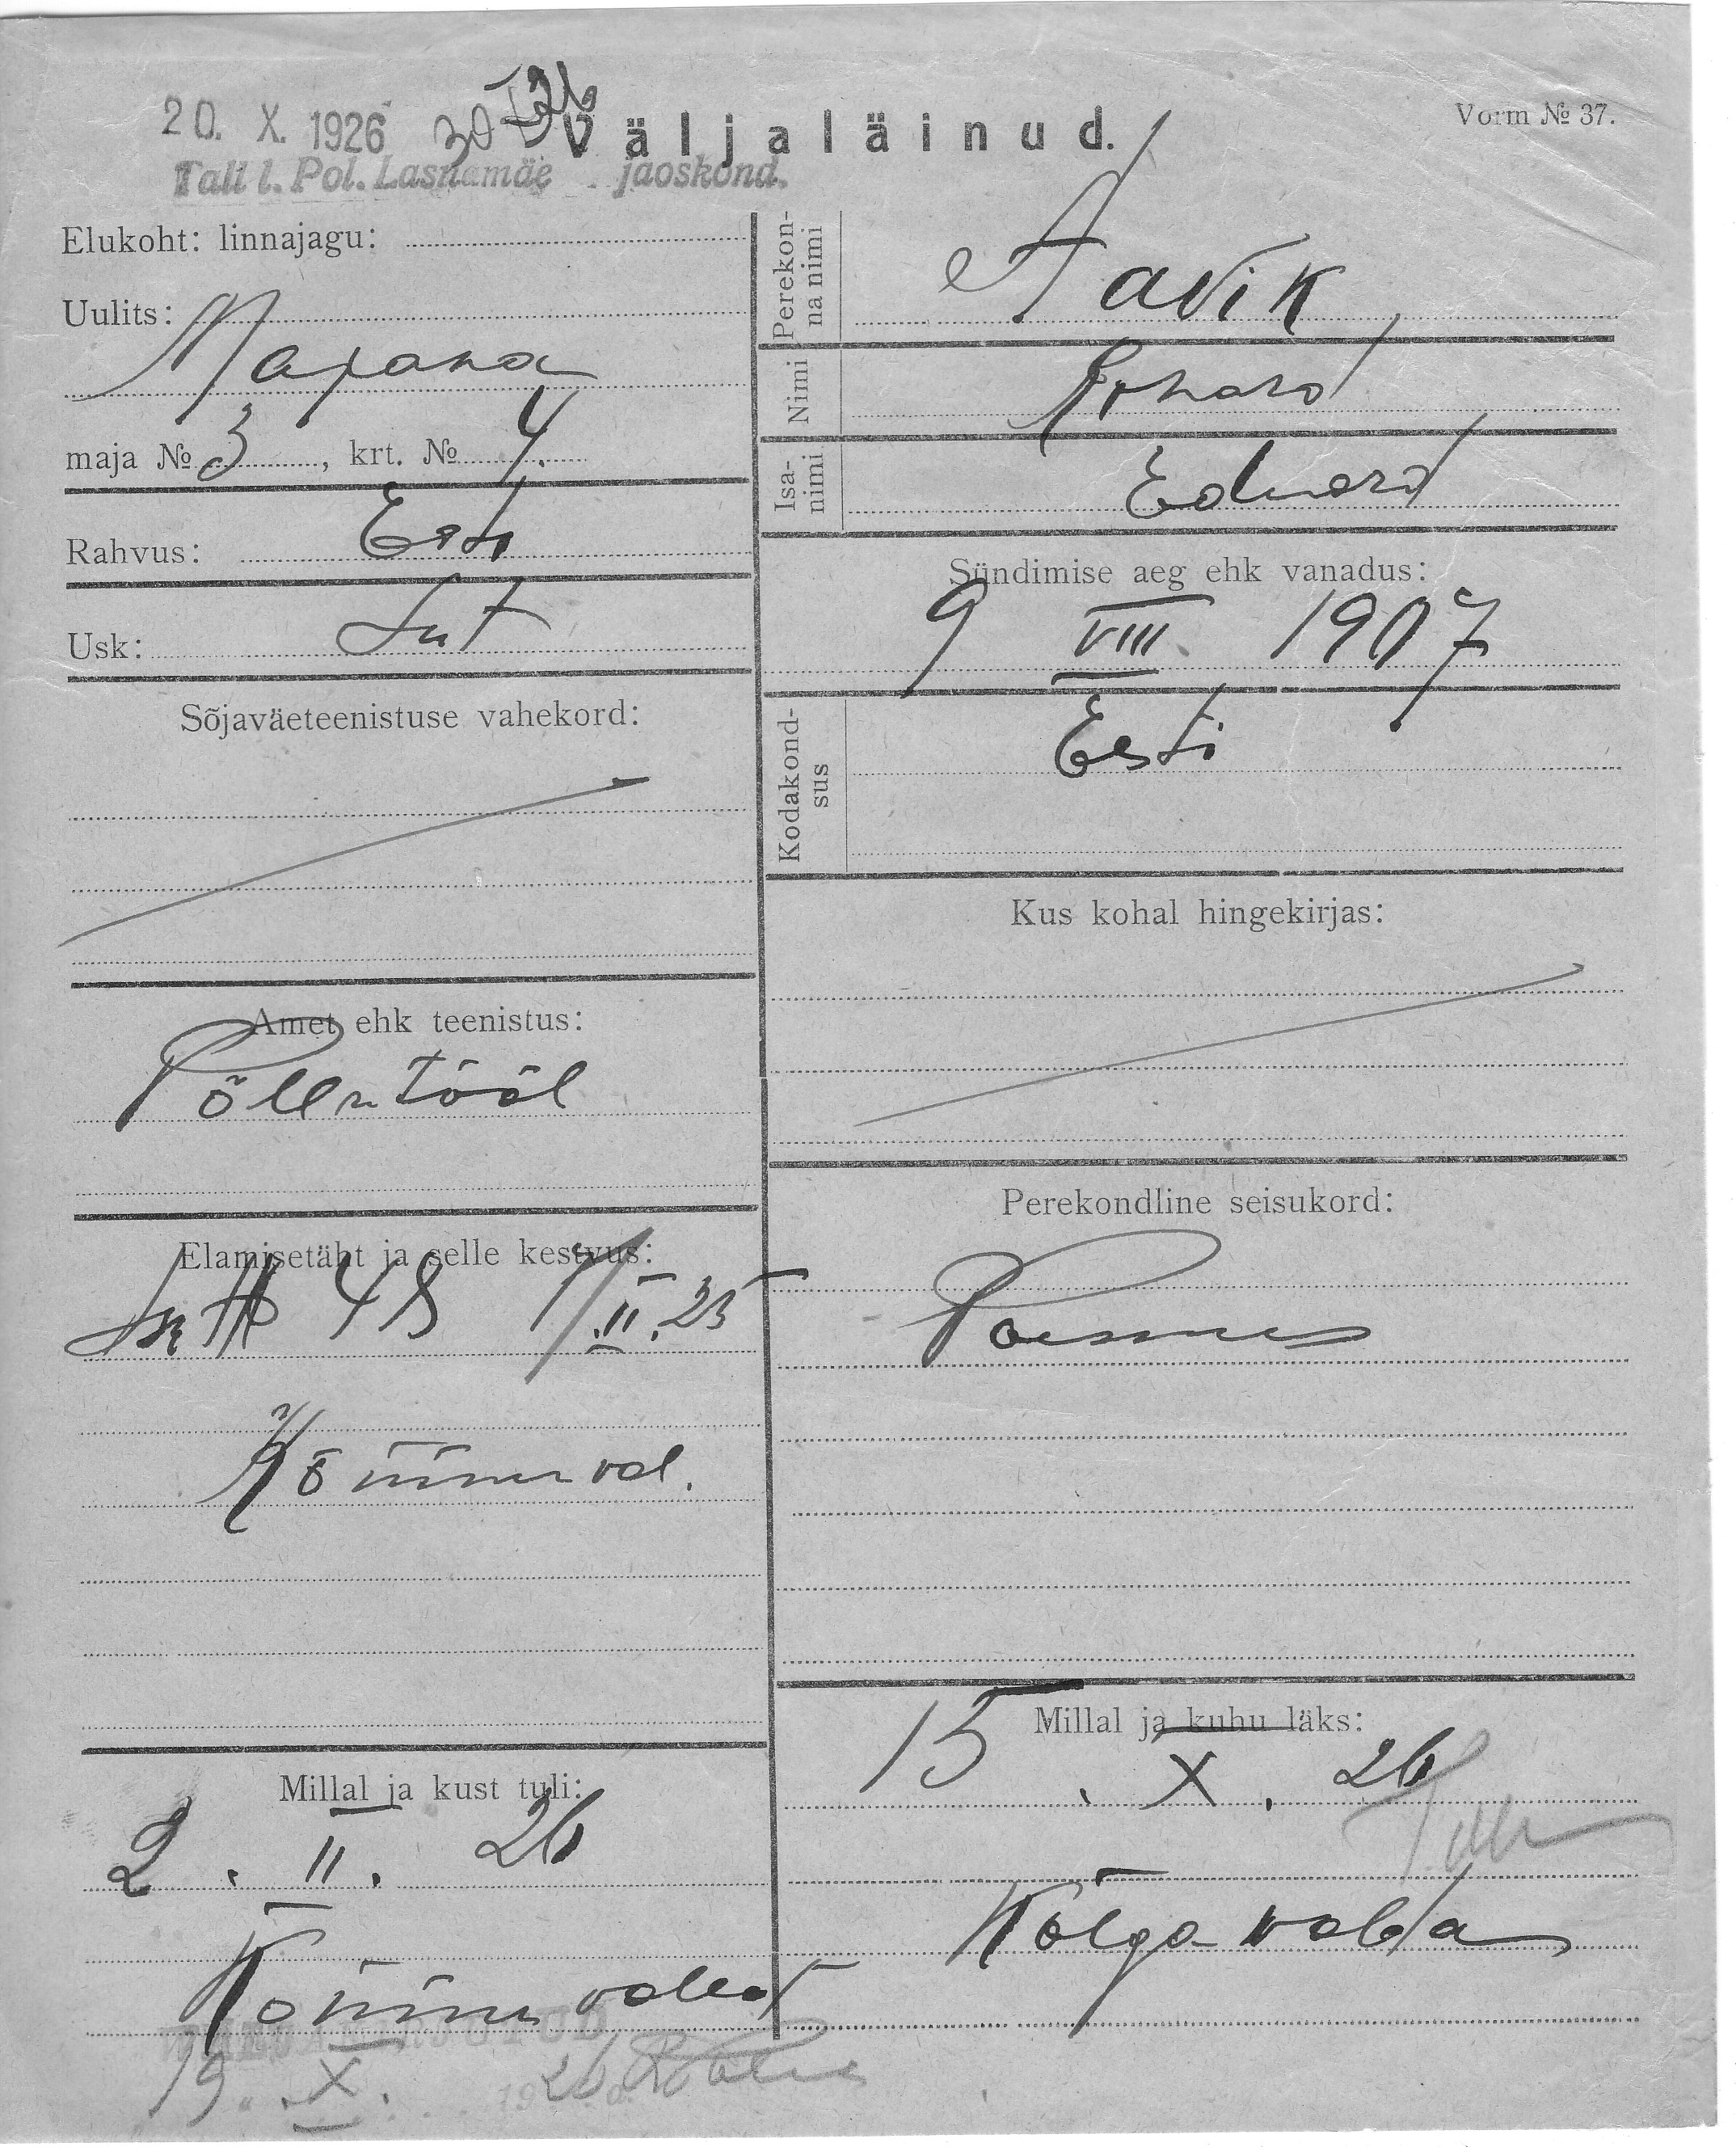 20. X. 1926
Väljaläinud.
Vorm № 37.
Tall l. Pol. Lasnamäe jaoskond.
Elukoht: linnajagu:
Uulits:
Majaka
maja № 3, krt. № 4.
Rahvus: Esti
Usk: Lut
Sõjaväeteenistuse vahekord:
Amet ehk teenistus:
Põllutööl
Elamisetäht ja selle kestvus:
48 II. 25
Kõnnu val.
Millal ja kust tuli:
2. II. 26
Kõnnu vallast
19. X. 1926
Perekonna nimi
Aavik
Nimi
Isanimi
Eduard
Sündimise aeg ehk vanadus:
9 VIII. 1907
Kodakondsus
Eesti
Kus kohal hingekirjas:
Perekondline seisukord:
Poissmees
Millal ja kuhu läks:
15. X. 26
Kolga valda